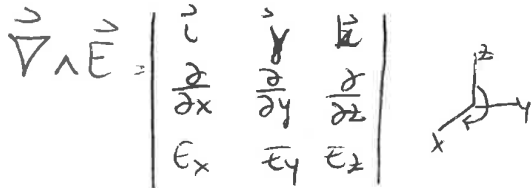 ∇⃗ ∧ E⃗ = | i⃗ j⃗ k⃗ |
| ∂/∂x ∂/∂y ∂/∂z |
| Ex Ey Ez |
z
y
x